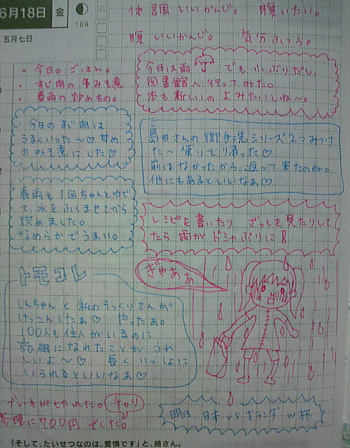 6月18日 金
169
五月七日
体調 いいかんじ。 腹いたい。
腹 いいかんじ。 気分 ふつう。
・今日のごはん。
・すじ肉の煮みそ煮
・春雨の炒めもの。
今日は雨 でも小ぶりだし、
図書館へ行ってみた。
本も新しいのよみたいしね〜。
今日のすじ肉は
うまいった〜♡ 甘め
のみそ煮にした♡
島田さんの御手洗シリーズ2つみつけ
た〜 借りて帰った♡
前はなかったから、返って来たのか。
他にもあるといいなぁ♡
春雨も1回ちゃんとゆで
て水をふくませてから
炒めました。
なめらかでうまい。
レシピを書いたり ざっしを見たりして
たら雨がドシャぶりに!
ぎゃぁぁ
トモコレ
しんちゃんと私のそっくりさんが
けっこんしたぁ♡ やったぁ。
100人も住人がいるのに
夫婦になれたことがうれ
しいよ〜♡ 長くいっしょに
いられるといいなぁ♡
ブレーキがこわれた。 チャリ
修理に700円でした。
明日 日本 vs オランダ W杯
「そして、たいせつなのは、愛情です」と、趙さん。